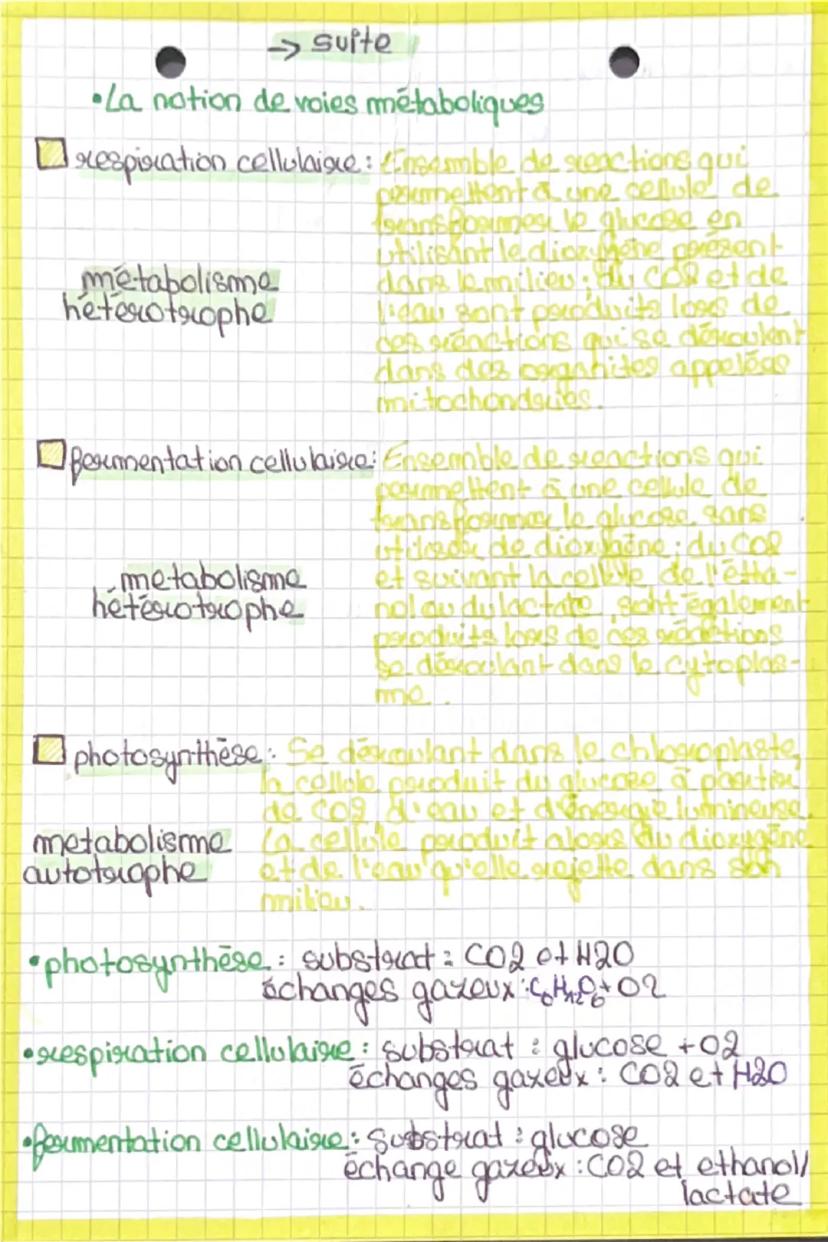 → suite
•La notion de voies métaboliques
respiration cellulaire: Ensemble de reactions qui
permettent à une cellule de
transformer le glucose en
utilisant le dioxygène présent
dans le milieu; du CO2 et de
l'eau sont produits lors de
ces réactions qui se déroulent
dans des organites appelées
mitochondries.
métabolisme
hétérotrophe
fermentation cellulaire: Ensemble de reactions qui
permettent à une cellule de
transformer le glucose sans
utiliser de dioxygène; du CO2
et suivant la cellule de l'étha-
nol ou du lactate, sont également
produits lors de ces réactions
se déroulant dans le cytoplas-
me.
métabolisme
hétérotrophe
photosynthèse: Se déroulant dans le chloroplaste,
la cellule produit du glucose à partir
de CO2, d'eau et d'énergie lumineuse.
La cellule produit alors du dioxygène
et de l'eau qu'elle rejette dans son
milieu.
metabolisme
autotrophe
•photosynthèse: substrat: CO2 et H2O
échanges gazeux: C6H12O6+O2
•respiration cellulaire: substrat: glucose +O2
échanges gazeux: CO2 et H2O
•fermentation cellulaire: Substrat: glucose
échange gazeux: CO2 et ethanol/
lactate